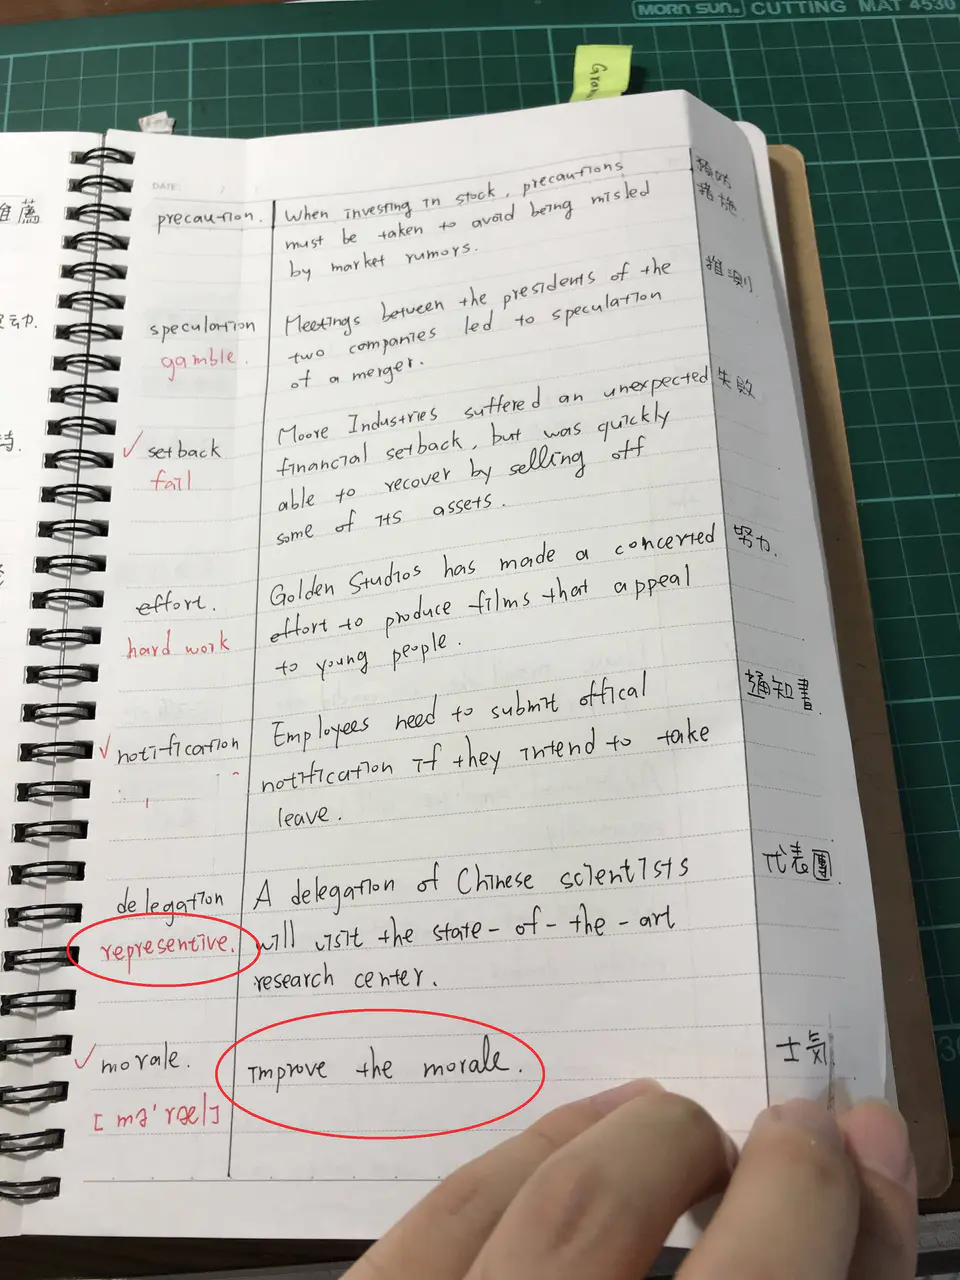 MORN SUN. CUTTING MAT 4530
DATE: / /
precaution.
When investing in stock, precautions
must be taken to avoid being misled
by market rumors.
預防
措施.
speculation
gamble.
Meetings between the presidents of the
two companies led to speculation
of a merger.
推測
✓ setback
fail
Moore Industries suffered an unexpected
financial setback, but was quickly
able to recover by selling off
some of its assets.
失敗
effort.
hard work
Golden Studios has made a concerted
effort to produce films that appeal
to young people.
努力.
✓ notification
Employees need to submit offical
notification if they intend to take
leave.
通知書.
delegation
representive.
A delegation of Chinese scientists
will visit the state-of-the-art
research center.
代表團.
✓ morale.
[mə'ræl]
improve the morale.
士気